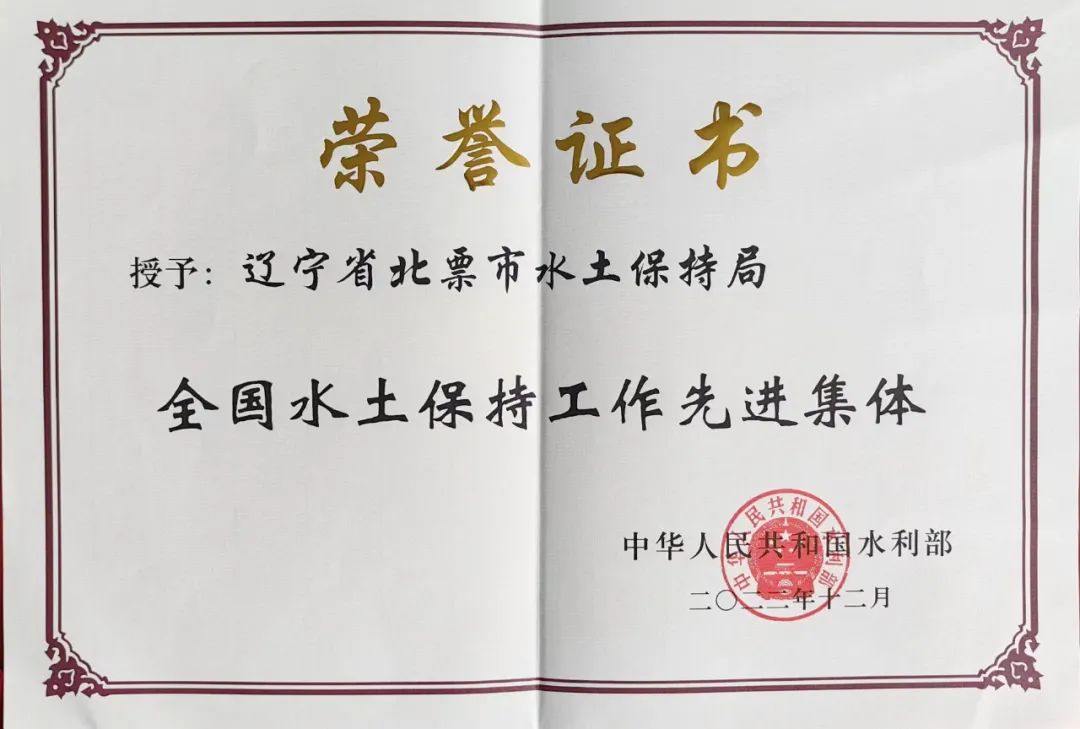 荣誉证书
授予：辽宁省北票市水土保持局
全国水土保持工作先进集体
中华人民共和国水利部
二〇二二年十二月
中华人民共和国水利部